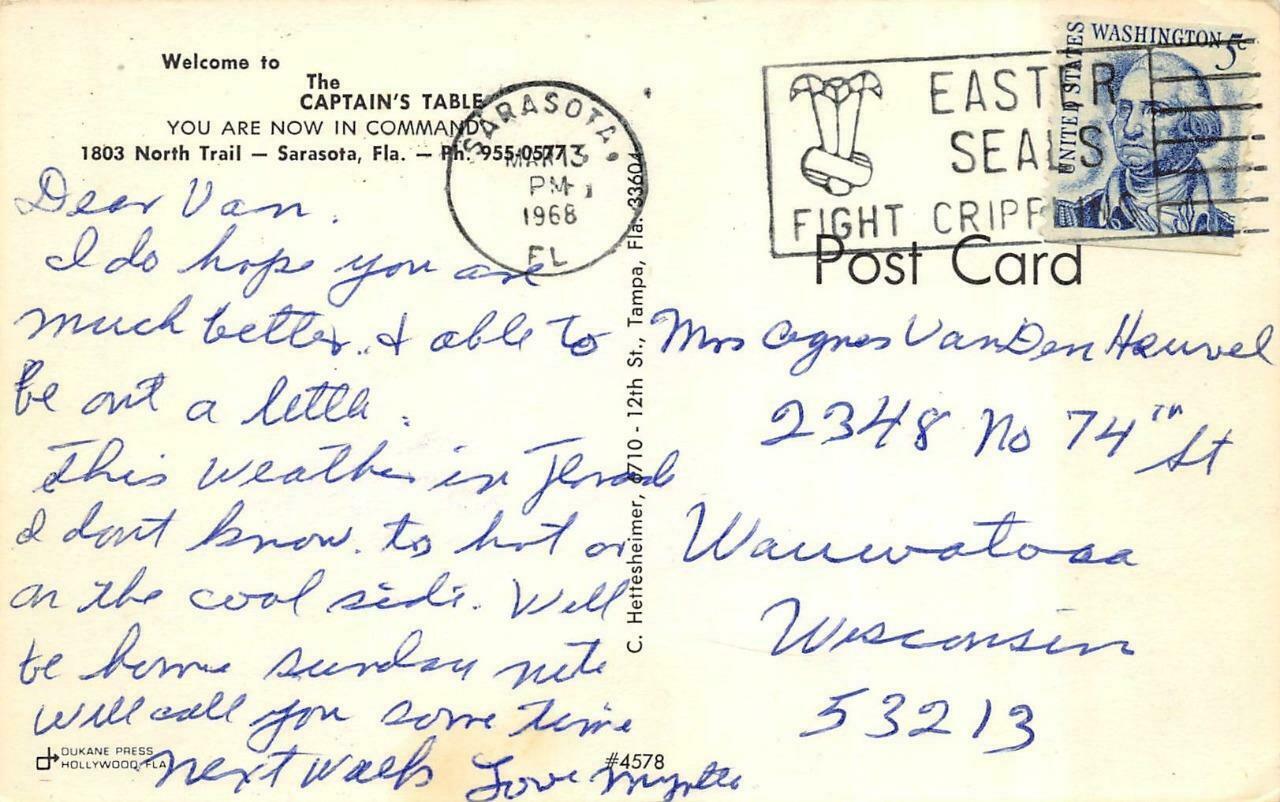 Welcome to
The
CAPTAIN'S TABLE
YOU ARE NOW IN COMMAND
1803 North Trail — Sarasota, Fla. — Ph. 955-0577
SARASOTA,
MAR 13
PM
1968
FL
EASTER
SEALS
FIGHT CRIPPLING
UNITED STATES
WASHINGTON 5c
Post Card
Dear Van.
I do hope you are
much better. & able to
be out a little.
This weather in
I dont know. to hot or
on the cool side. Will
be home sunday nite
will call you some time
next week Love Myrtle
C. Hettesheimer, 6710 - 12th St., Tampa, Fla. 33604
Mrs Agnes VanDen Heuvel
2348 No 74TH St
Wauwatosa
Wisconsin
53213
DUKANE PRESS
HOLLYWOOD, FLA
#4578